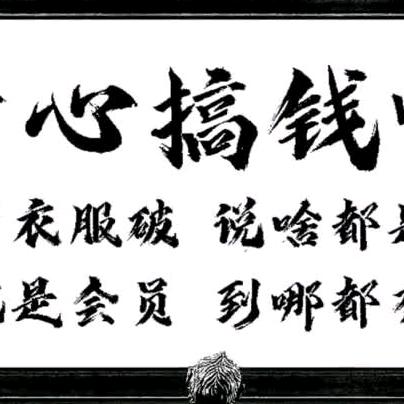 心搞钱
衣服破 说啥都
是会员 到哪都